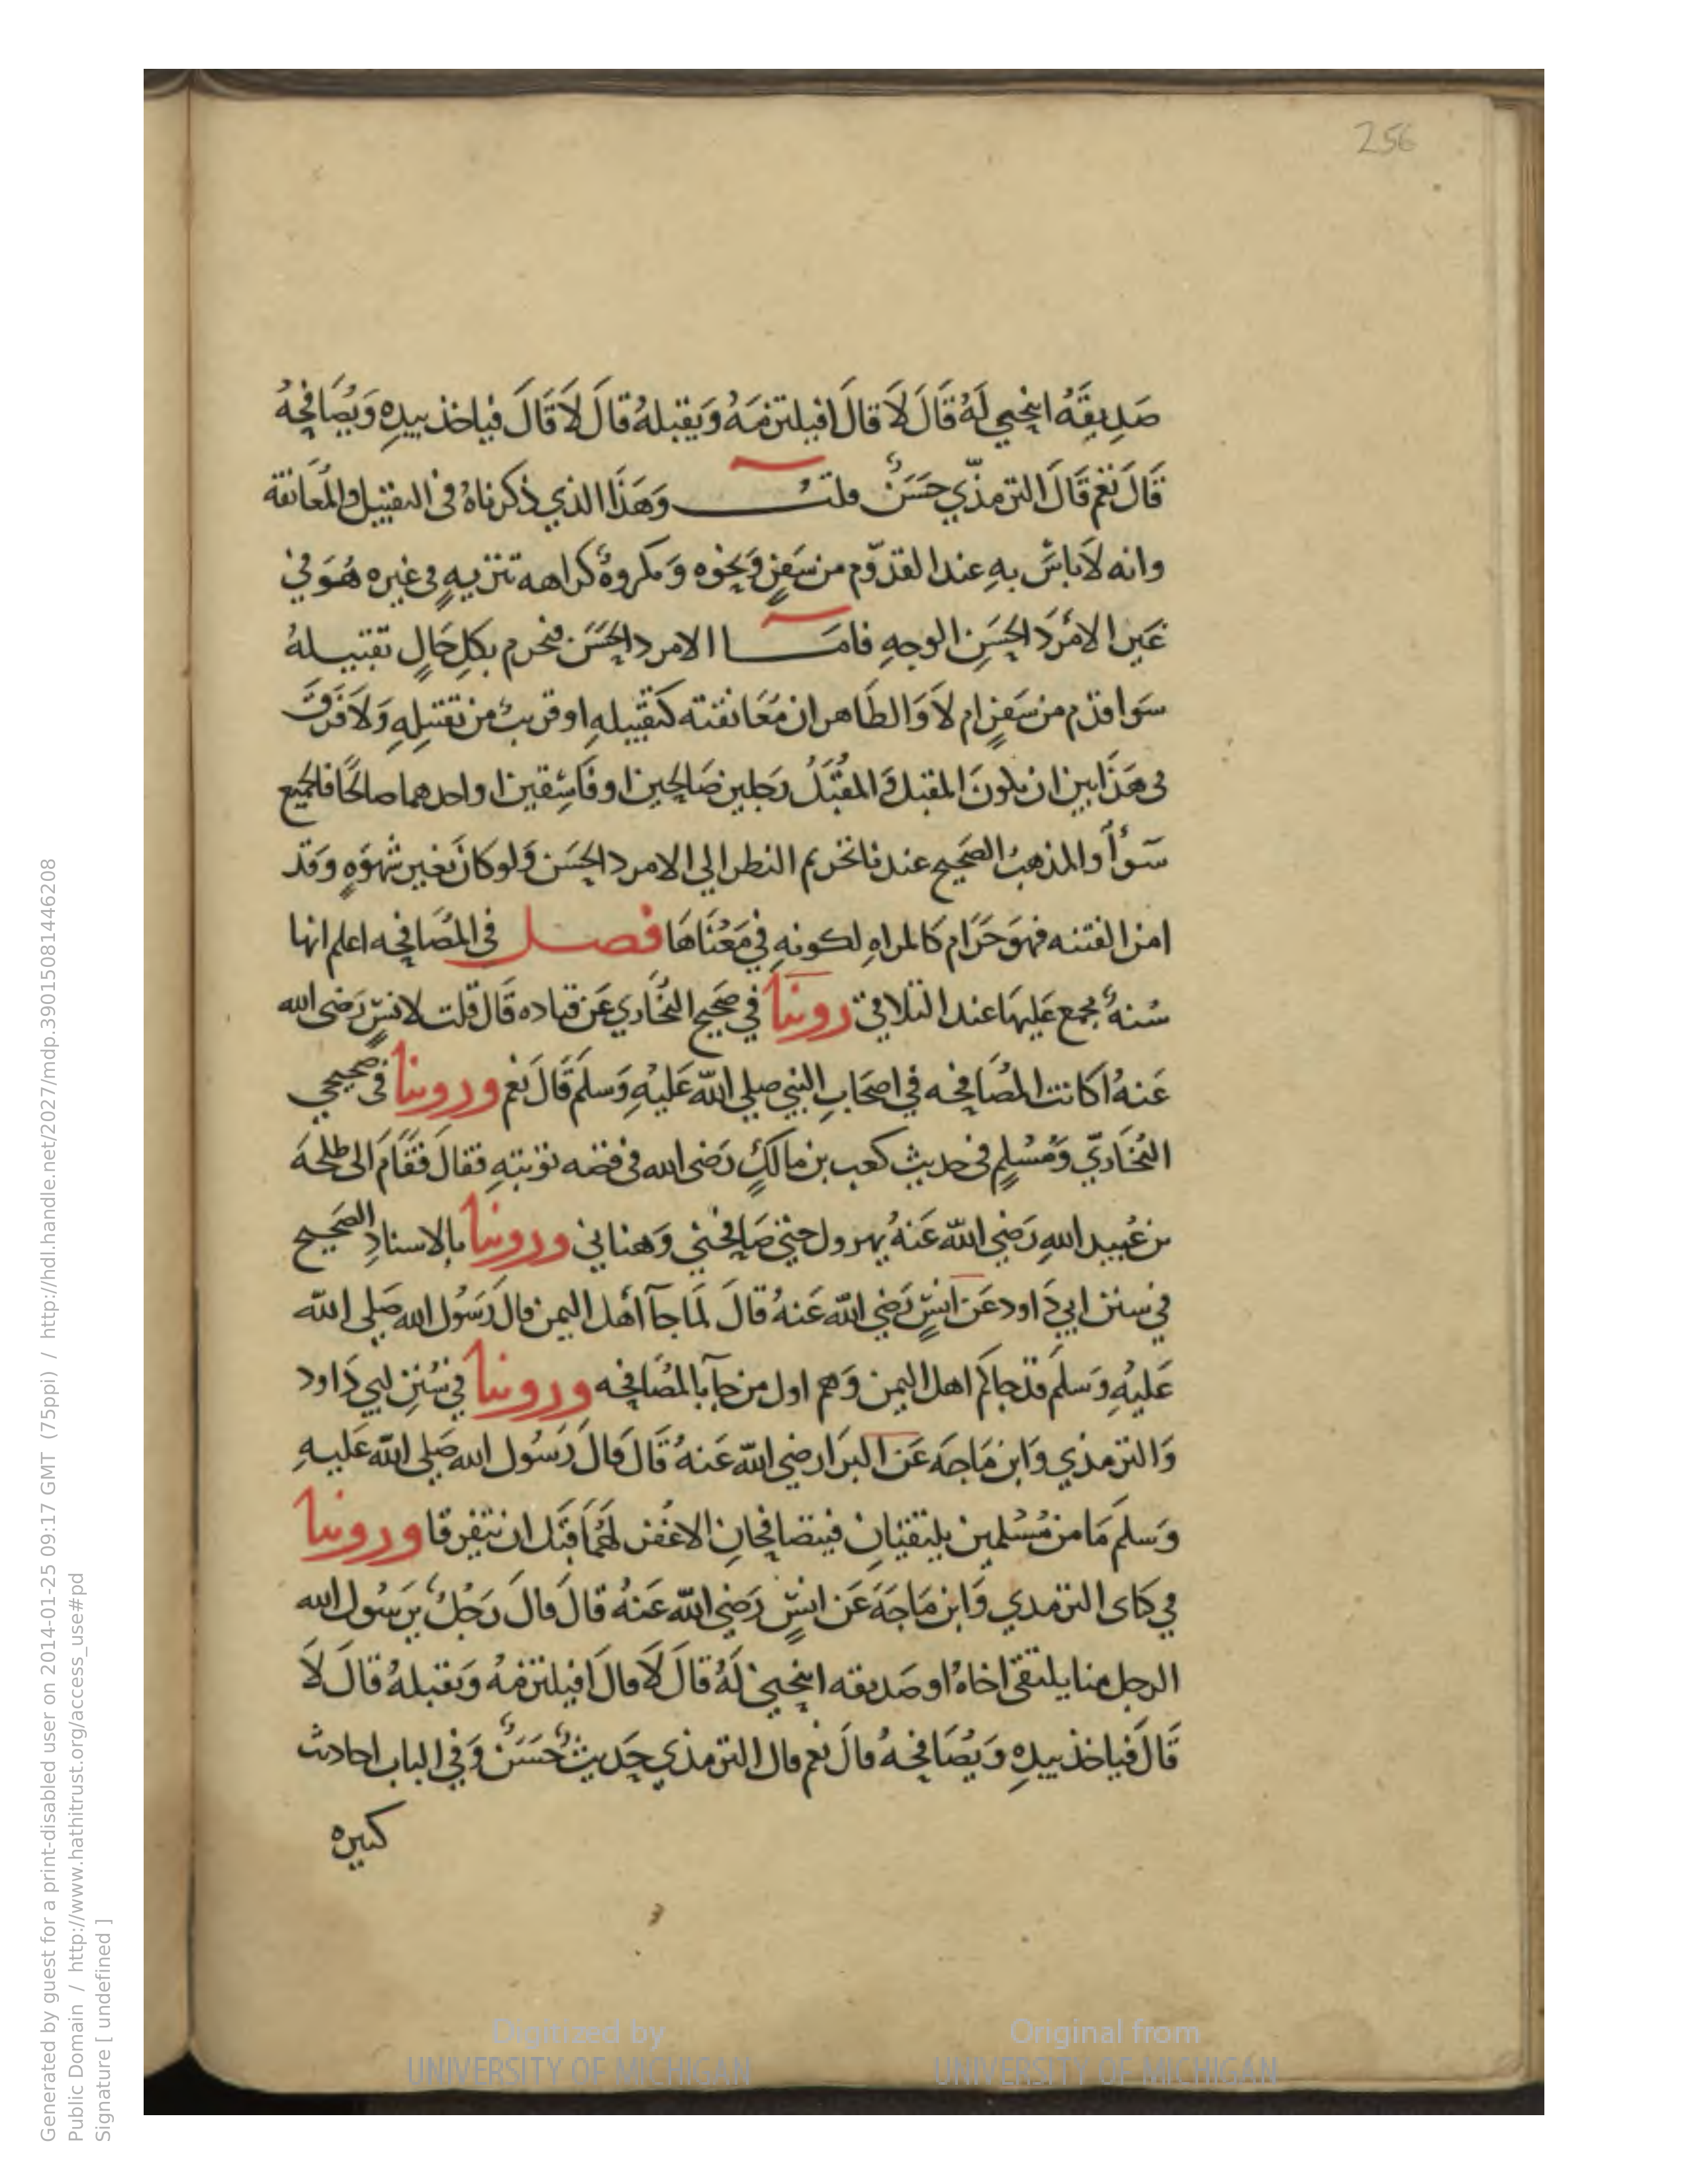 256
صَدِيقَهُ اينحني لَهُ قَالَ لَا قَالَ افيلتزمَهُ وَيقبلهُ قالَ لَا قَالَ فياخذ بيدِهِ وَيُصَافحُهُ
قَالَ نَعَم قَالَ الترمذّي حَسَنٌ قلتُ وَهَذَا الذي ذكرناهُ فى التقبيل والمُعَانقة
وانه لَا باسَ بهِ عند القدوم من سَفرٍ وَنحوه وَمكروهٌ كراهه تنزيهٍ فى غيره هُوَ في
غَير الامْرَد الحسَنِ الوجهِ فامَا الامرد الحَسَن فيحرم بكلِ حَالٍ تقبيلهُ
سَوا قدم من سَفرٍ ام لَا وَالظَاهر ان مُعَانقته كتقبيلهِ او قريبٌ من تقبيلِهِ وَلَا فَرقَ
فى هَذَا بين ان يكونَ المقبل وَالمقَبَّلُ رَجلين صَالحِين او فَاسِقين او احدهما صالحًا فالجميع
سَوأٌ والمذهبُ الصَحيح عندنا تحريم النظر الي الامرد الحسَن وَلو كانَ بغير شهوَهٍ وَقد
امن الفتنه فهوَ حَرَام كالمراهِ لكونهِ في مَعْنَاهَا فصل فى المُصَافحه اعلم انها
سُنهٌ مجمع عَليهَا عند التلاقي روينا في صَحيح البُخَاري عَن قتاده قَالَ قلت لانسٍ رَضى الله
عَنهُ اكانت المُصَافحه في اصحَابِ النبي صلي الله عَليهِ وَسلمَ قَالَ نعم وروينا فى صحيحي
البُخَاريّ وَمُسْلِمٍ فى حديث كعب بن مالكٍ رَضى الله فى قصه توبتهِ فقالَ فقَامَ الى طلحَهَ
بن عُبيد اللهِ رَضي الله عَنهُ يهرول حتى صَافحني وَهناني وروينا بالاسنادِ الصَحيح
في سنن ابي دَاود عَن انسٍ رَضي الله عَنهُ قالَ لمَا جآ أهْل اليمن قال رَسُول الله صَلي الله
عَليهِ وَسَلمَ قد جاكم اهل اليمن وَهم اول من جآ بالمُصَافحه وروينا في سُنَنِ ابي دَاود
وَالترمذي وَابن مَاجَه عَن البرَا رضي الله عَنهُ قَالَ قالَ رَسُول الله صَلي الله عَليهِ
وَسلم مَا من مُسْلمين يلتقيَانِ فيتصَافحانِ الا غُفر لهُمَا قَبَل ان يتفرقا وروينا
في كتابى الترمدي وَابن مَاجَهَ عَن انسٍ رَضي الله عَنهُ قالَ قالَ رَجُلٌ يرَسُول الله
الرجل منا يلتقى اخاهُ او صَديقه اينحني لَهُ قالَ لَا قالَ افيلتزمُهُ وَيقبلهُ قالَ لَا
قَالَ فياخذ بيدِهِ وَيُصَافحهُ قالَ نعم قال الترمذي حَديثٌ حَسَنٌ وَفي الباب احاديث
كثيره
Digitized by
UNIVERSITY OF MICHIGAN
Original from
UNIVERSITY OF MICHIGAN
Generated by guest for a print-disabled user on 2014-01-25 09:17 GMT (75ppi) / http://hdl.handle.net/2027/mdp.39015081446208
Public Domain / http://www.hathitrust.org/access_use#pd
Signature [ undefined ]